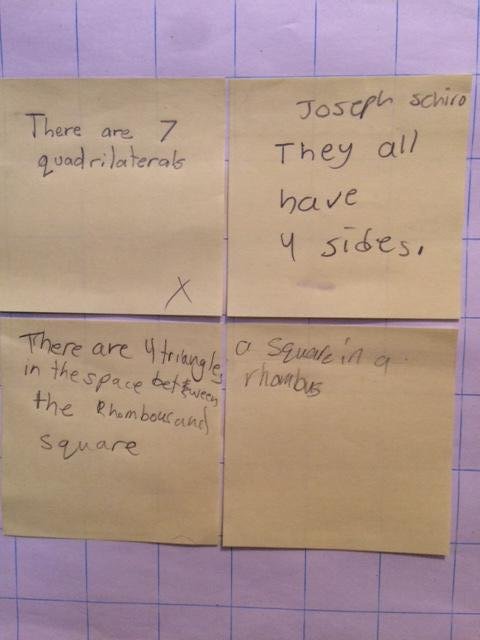 There are 7
quadrilaterals
X
Joseph schiro
They all
have
4 sides.
There are 4 triangles
in the space between
the Rhombous and
square
a square in a
rhombus